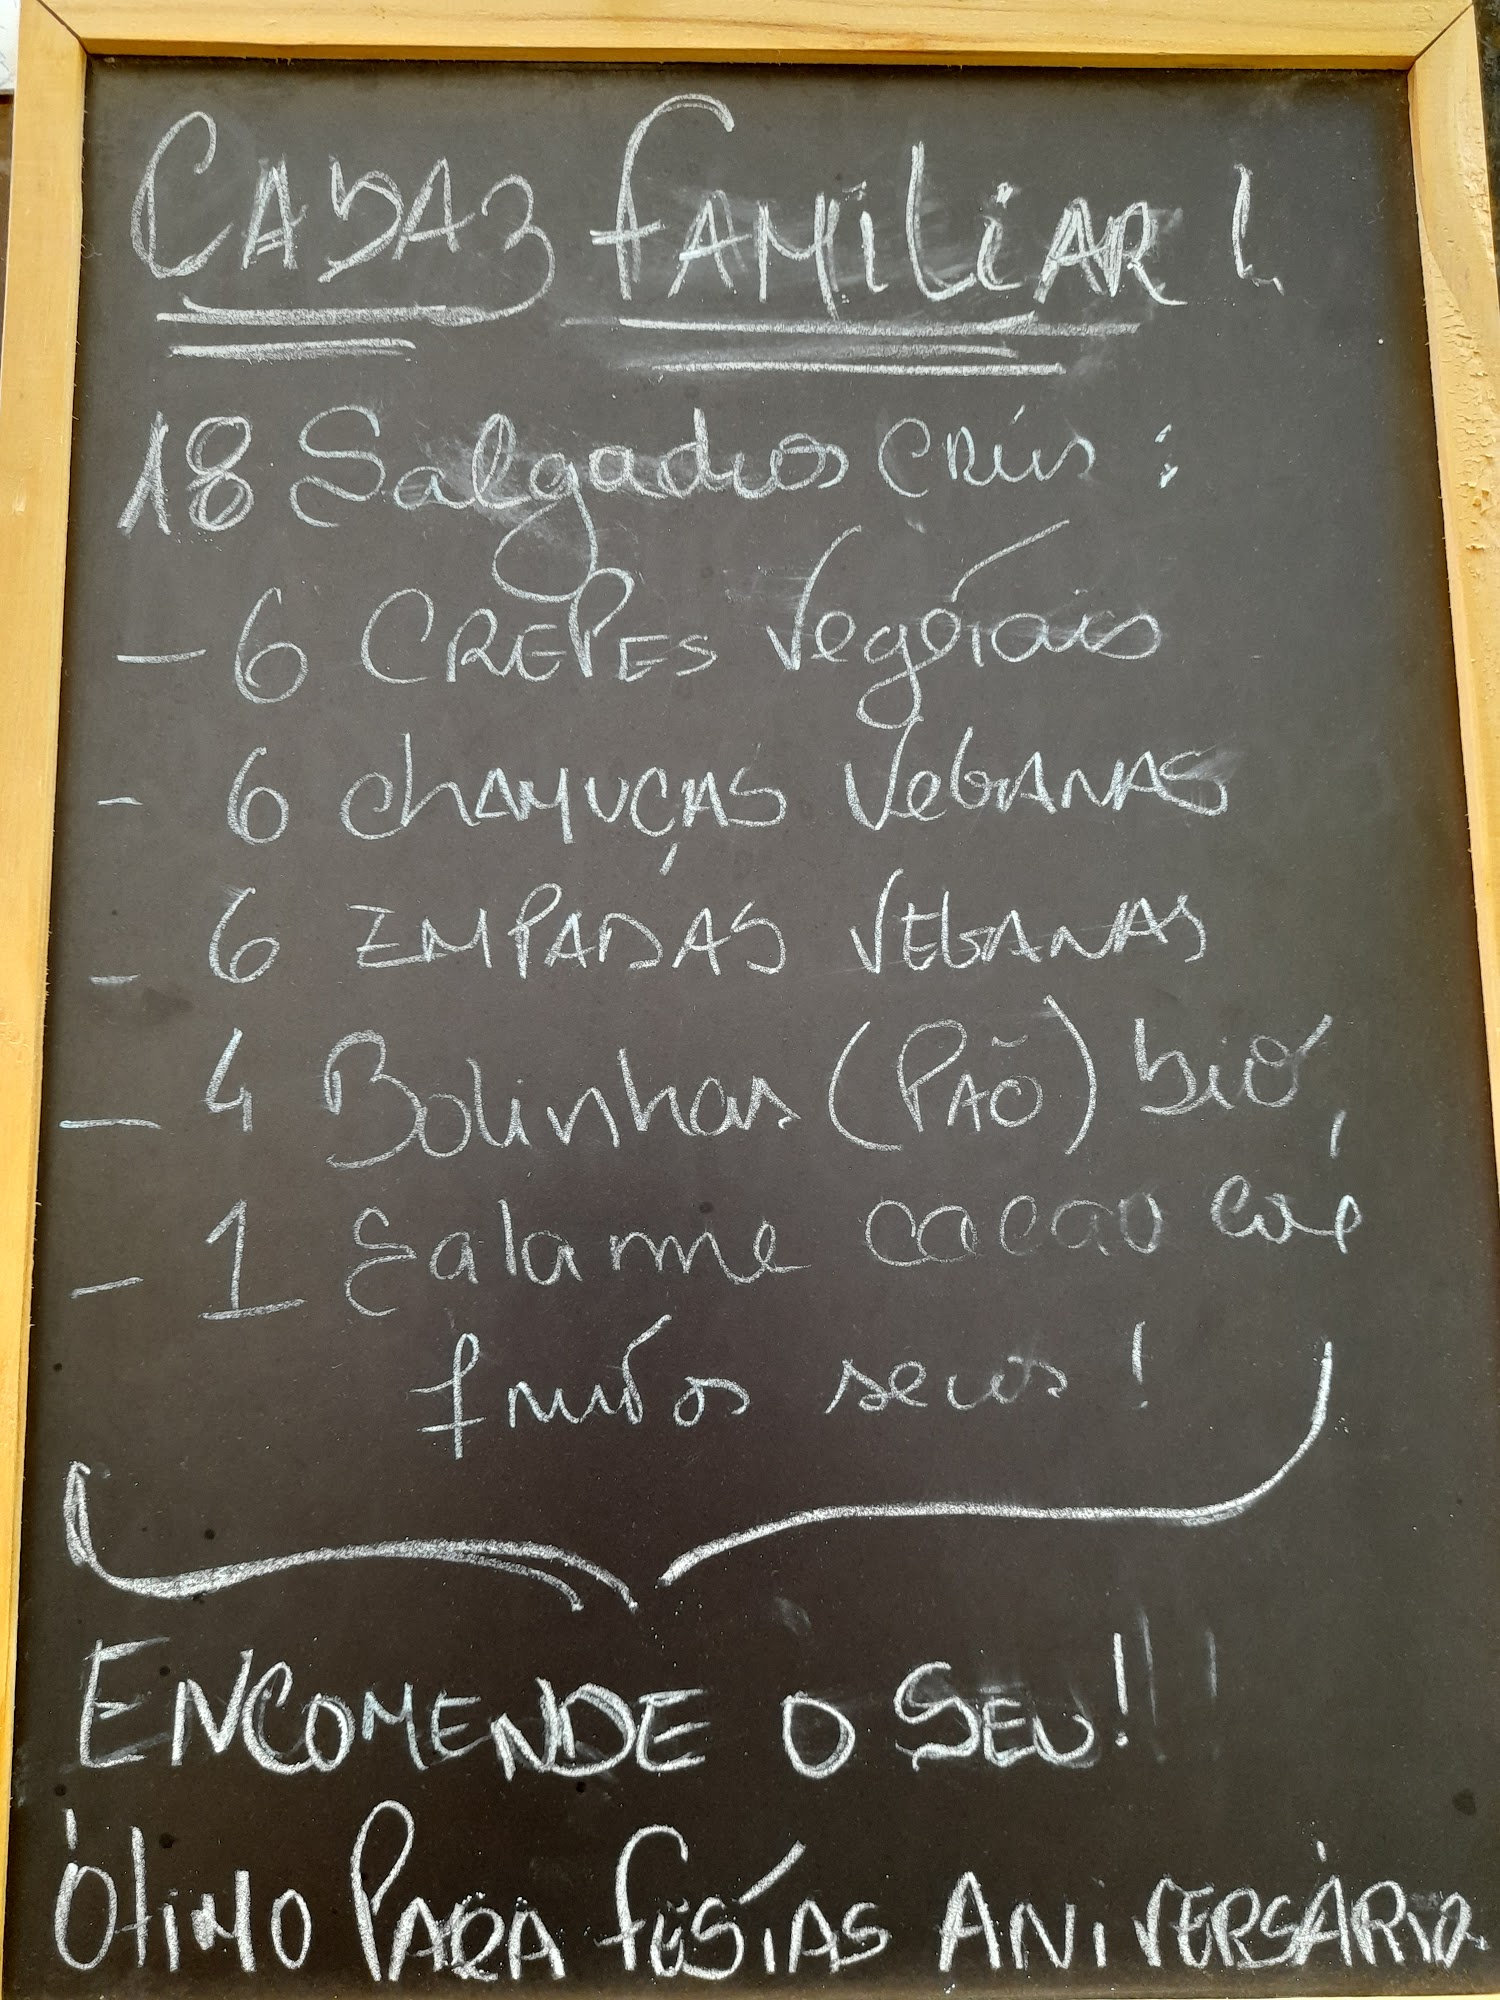 CABAZ FAMILIAR !
18 Salgados crús :
- 6 CREPES Vegetais
- 6 CHAMUÇAS VEGANAS
- 6 EMPADAS VEGANAS
- 4 Bolinhas (PÃO) bio,
- 1 Salame cacau com
frutos secos !
ENCOMENDE O SEU!
ÓTIMO PARA FESTAS ANIVERSÁRIO